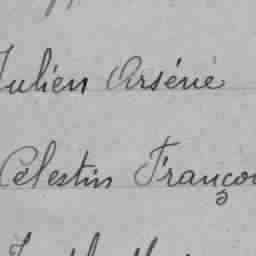 Julien Arsénie
Célestin Françoi